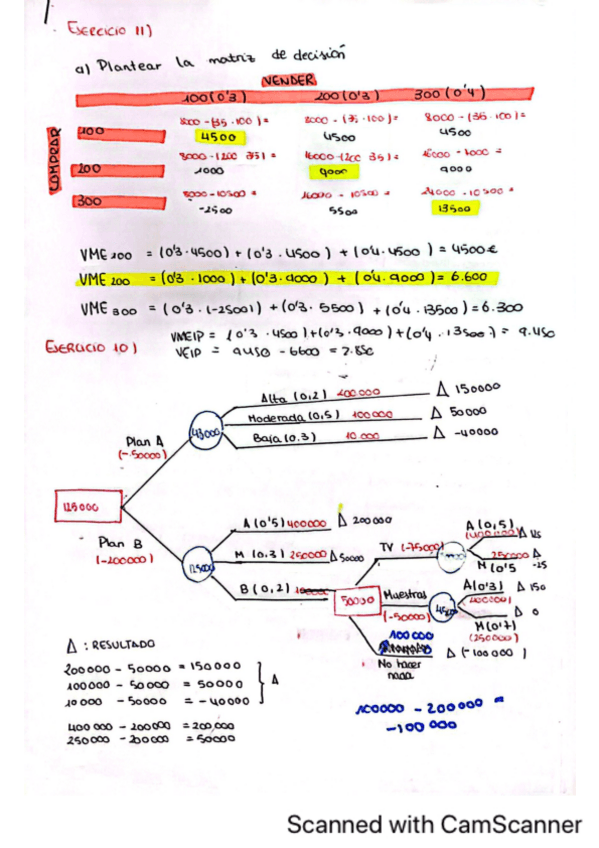 EJERCICIO 11)
a) Plantear la matriz de decisión
VENDER
100 (0'3) 200 (0'3) 300 (0'4)
COMPRAR
100
8000 - (35 · 100) = 8000 - (35 · 100) = 8000 - (35 · 100) =
4500 4500 4500
200
8000 - (200 35) = 16000 - (200 35) = 16000 - 7000 =
1000 9000 9000
300
8000 - 10500 = 16000 - 10500 = 24000 - 10500 =
-2500 5500 13500
VME 100 = (0'3 · 4500) + (0'3 · 4500) + (0'4 · 4500) = 4500€
VME 200 = (0'3 · 1000) + (0'3 · 9000) + (0'4 · 9000) = 6.600
VME 300 = (0'3 · (-2500)) + (0'3 · 5500) + (0'4 · 13500) = 6.300
VMEIP = (0'3 · 4500) + (0'3 · 9000) + (0'4 · 13500) = 9.450
EJERCICIO 10)
VEIP = 9450 - 6600 = 2.850
Alta (0,2) 200.000 Δ 150000
Moderada (0,5) 100000 Δ 50000
Baja (0.3) 10.000 Δ -40000
Plan A
(-50000)
43000
125000
Plan B
(-200000)
125000
A (0'5) 400000 Δ 200000
M (0.3) 250000 Δ 50000
B (0,2)
50000
TV (-75000)
A (0,5)
Δ 125
250000 Δ
M (0'5 -25
Muestras
(-50000)
45000
A (0'3) Δ 150
(400000)
Δ 0
M (0'7)
(250000)
100000
No hacer
nada
Δ (-100000)
Δ : RESULTADO
200000 - 50000 = 150000
100000 - 50000 = 50000
10000 - 50000 = -40000
Δ
400000 - 200000 = 200,000
250000 - 200000 = 50000
100000 - 200000 =
-100000
Scanned with CamScanner